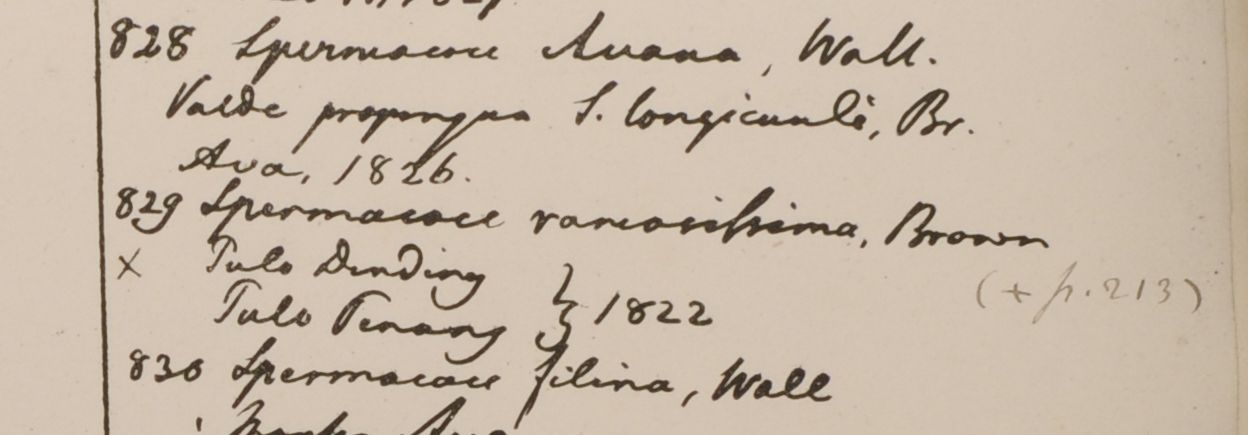 828 Spermacoce Avana, Wall.
Valde propinqua S. longicauli, Br.
Ava, 1826.
829 Spermacoce ramosissima, Brown
x Pulo Dinding
(+ p. 213)
Pulo Penang } 1822
830 Spermacoce filina, Wall